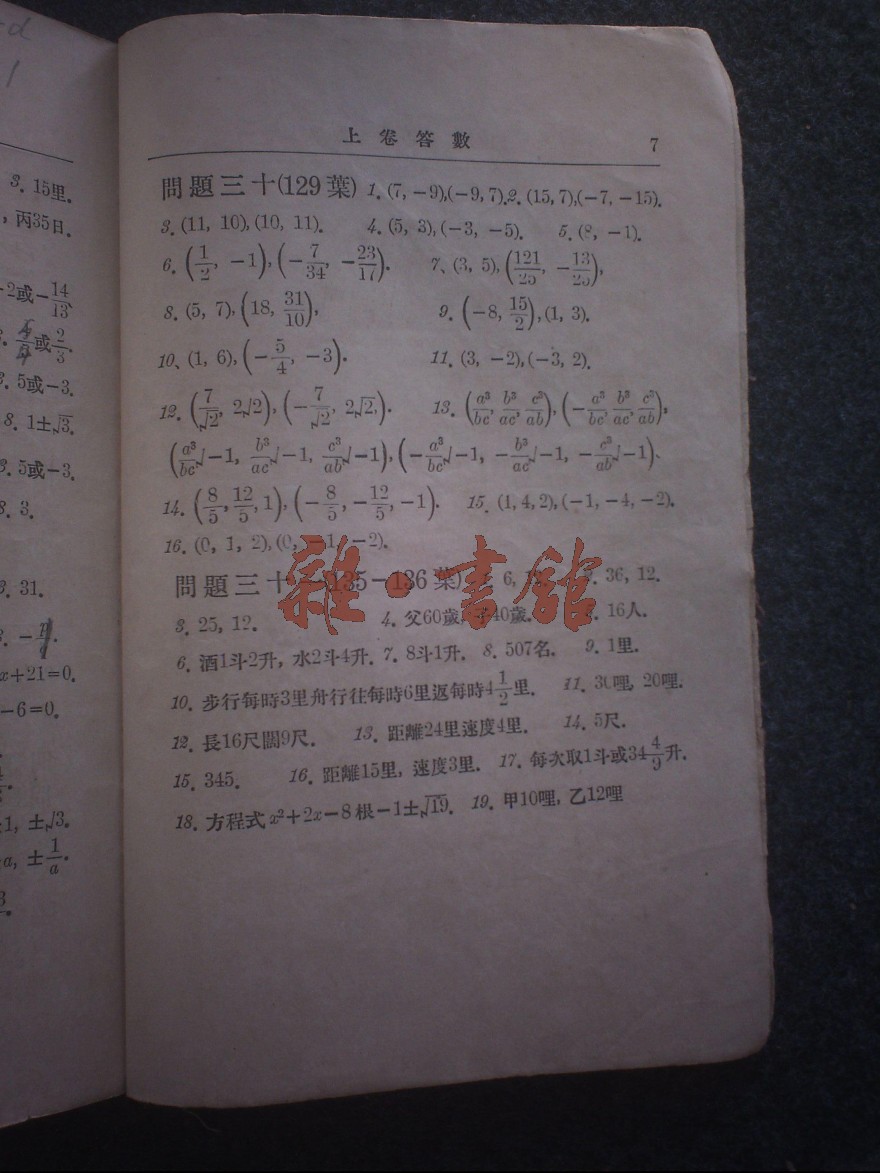 3. 15里.
,丙35日.
2或-14/13
或2/3.
5或-3.
8. 1±√3.
3. 5或-3.
8. 3.
3. 31.
x+21=0.
-6=0.
1, ±√3.
a, ±1/a.
上卷答數 7
問題三十(129葉) 1. (7, -9),(-9, 7). 2. (15, 7),(-7, -15).
3. (11, 10), (10, 11). 4. (5, 3), (-3, -5). 5. (8, -1).
6. (1/2, -1), (-7/34, -23/17). 7、(3, 5), (121/25, -13/25),
8. (5, 7), (18, 31/10), 9. (-8, 15/2), (1, 3).
10、(1, 6), (-5/4, -3). 11. (3, -2),(-3, 2).
12. (7/√2, 2√2), (-7/√2, 2√2,). 13. (a³/bc, b³/ac, c³/ab), (-a³/bc, b³/ac, c³/ab),
(a³/bc√-1, b³/ac√-1, c³/ab√-1), (-a³/bc√-1, -b³/ac√-1, -c³/ab√-1)、
14. (8/5, 12/5, 1), (-8/5, -12/5, -1). 15. (1, 4, 2), (-1, -4, -2).
16. (0, 1, 2), (0, -1, -2).
雜·書館
問題三十 135-136葉) 6, 36, 12.
3. 25, 12. 4. 父60歲 子40歲. 16人.
6. 酒1斗2升, 水2斗4升. 7. 8斗1升. 8. 507名. 9. 1里.
10. 步行每時3里舟行往每時6里返每時4 1/2里. 11. 30哩, 20哩.
12. 長16尺闊9尺. 13. 距離24里速度4里. 14. 5尺.
15. 345. 16. 距離15里, 速度3里. 17. 每次取1斗或34 4/9升.
18. 方程式 x²+2x-8 根-1±√19. 19. 甲10哩, 乙12哩